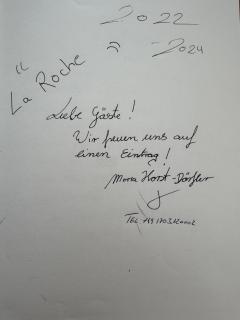 2022
- 2024
"La Roche"
Liebe Gäste!
Wir freuen uns auf
einen Eintrag!
Horst-Dörfler
TEL